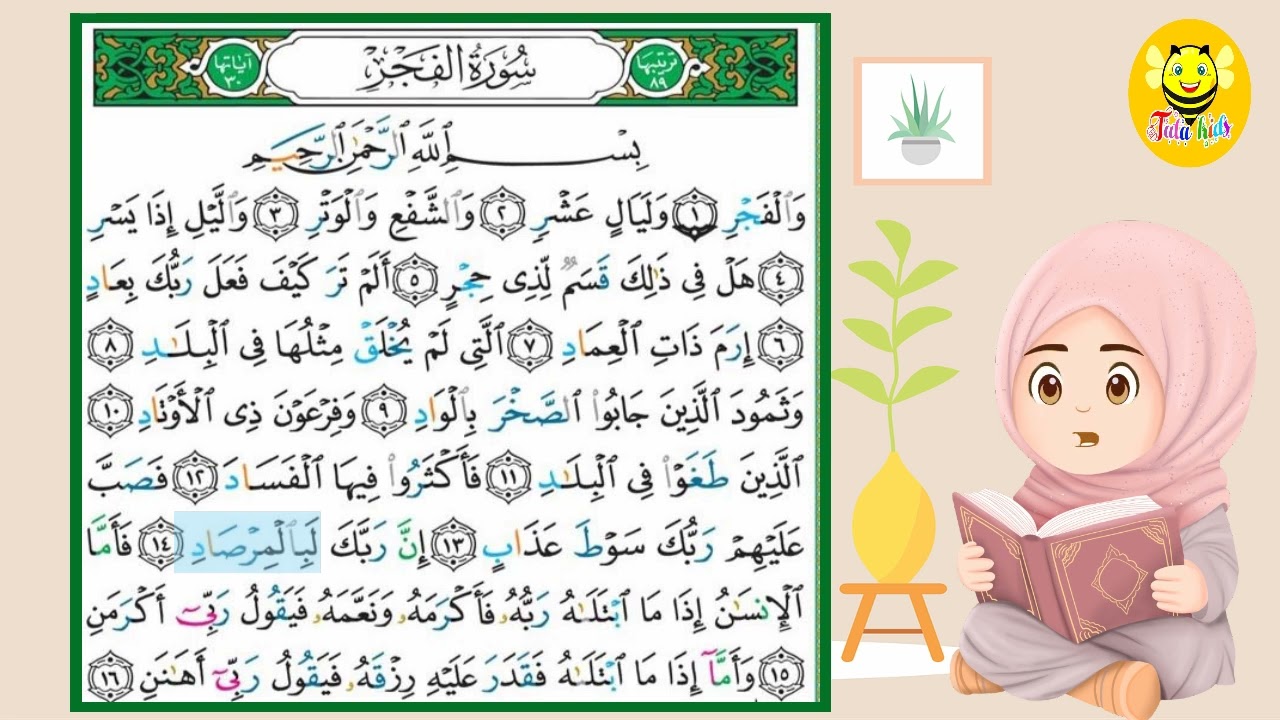 ترتيبها ٨٩
سُورَةُ الفَجْرِ
آياتها ٣٠
بِسْمِ ٱللَّهِ ٱلرَّحْمَٰنِ ٱلرَّحِيمِ
وَٱلْفَجْرِ ١ وَلَيَالٍ عَشْرٍ ٢ وَٱلشَّفْعِ وَٱلْوَتْرِ ٣ وَٱلَّيْلِ إِذَا يَسْرِ
٤ هَلْ فِى ذَٰلِكَ قَسَمٌ لِّذِى حِجْرٍ ٥ أَلَمْ تَرَ كَيْفَ فَعَلَ رَبُّكَ بِعَادٍ
٦ إِرَمَ ذَاتِ ٱلْعِمَادِ ٧ ٱلَّتِى لَمْ يُخْلَقْ مِثْلُهَا فِى ٱلْبِلَٰدِ ٨
وَثَمُودَ ٱلَّذِينَ جَابُوا۟ ٱلصَّخْرَ بِٱلْوَادِ ٩ وَفِرْعَوْنَ ذِى ٱلْأَوْتَادِ ١٠
ٱلَّذِينَ طَغَوْا۟ فِى ٱلْبِلَٰدِ ١١ فَأَكْثَرُوا۟ فِيهَا ٱلْفَسَادَ ١٢ فَصَبَّ
عَلَيْهِمْ رَبُّكَ سَوْطَ عَذَابٍ ١٣ إِنَّ رَبَّكَ لَبِٱلْمِرْصَادِ ١٤ فَأَمَّا
ٱلْإِنسَٰنُ إِذَا مَا ٱبْتَلَىٰهُ رَبُّهُۥ فَأَكْرَمَهُۥ وَنَعَّمَهُۥ فَيَقُولُ رَبِّىٓ أَكْرَمَنِ
١٥ وَأَمَّآ إِذَا مَا ٱبْتَلَىٰهُ فَقَدَرَ عَلَيْهِ رِزْقَهُۥ فَيَقُولُ رَبِّىٓ أَهَٰنَنِ ١٦
Tala kids